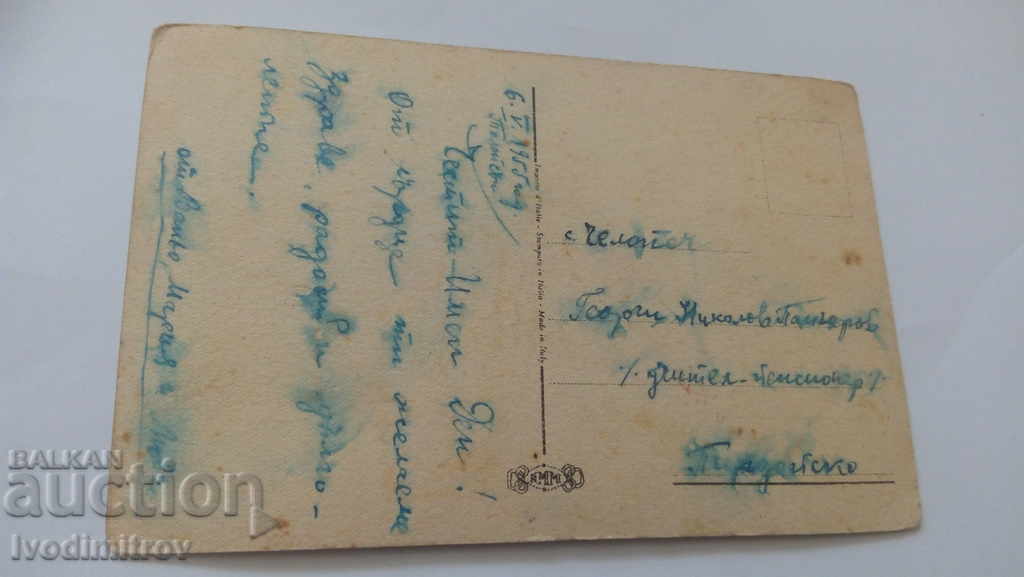 6. V. 1955 год.
Честит Имен Ден!
От сърце ти желаем
здраве, радост и дълго-
летие.
от Ваньо, Мария и
Imprime d'Italie - Stampato in Italia - Made in Italy
с. Челопеч
Георги Николов
/. учител-пенсионер /.
Пирдопско
BALKAN
auction
Ivodimitrov